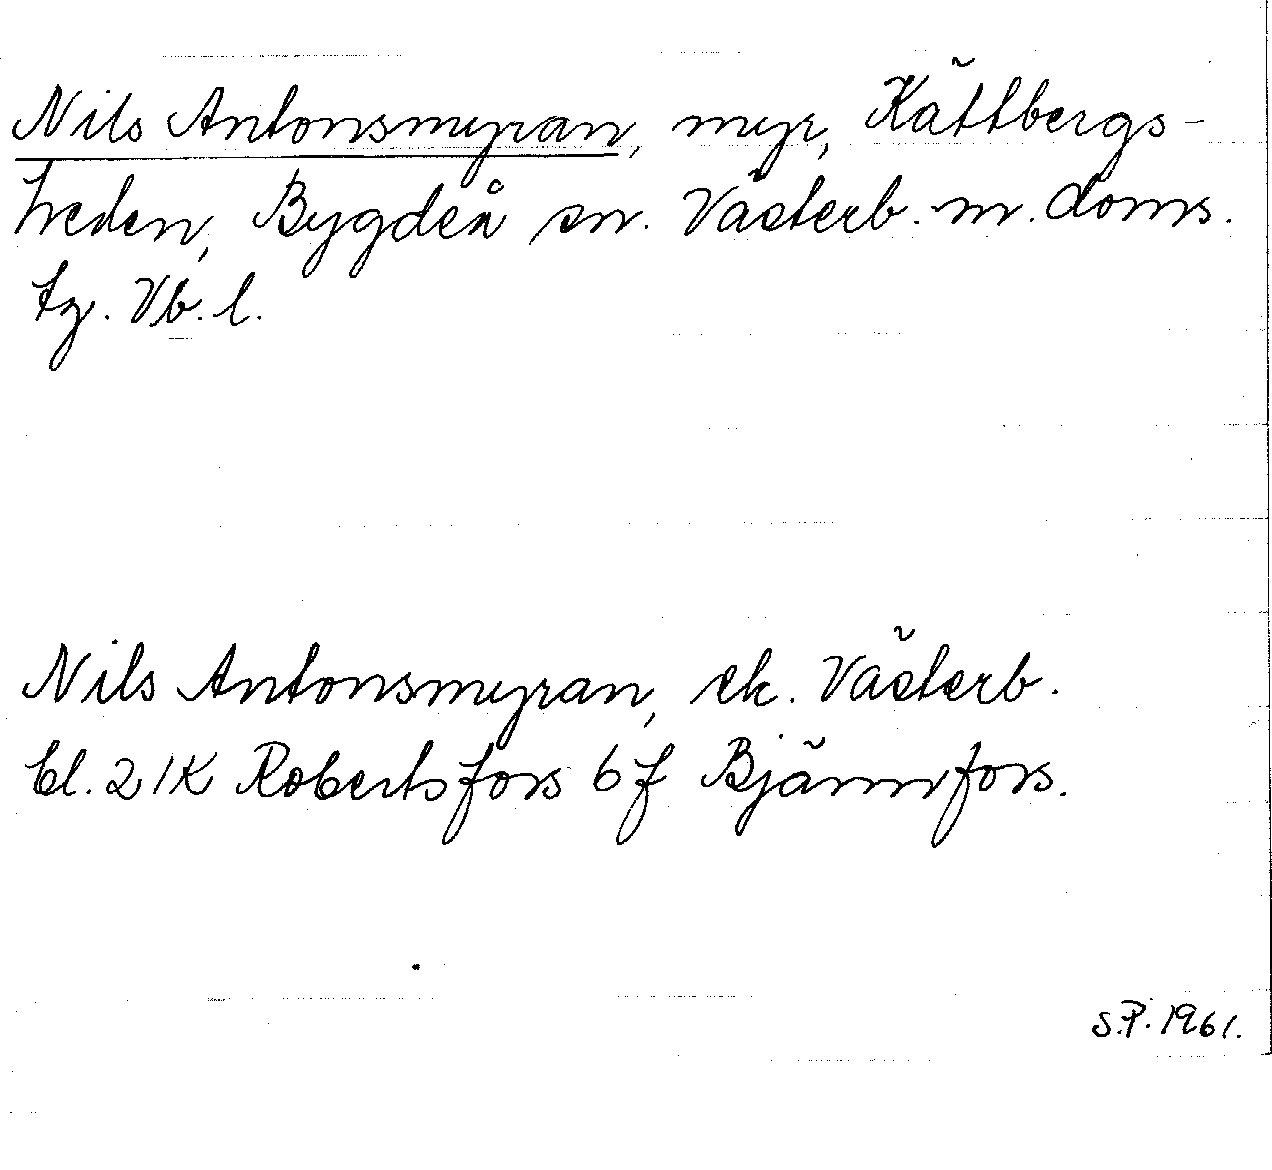 Nils Antonsmyran, myr, Kättbergs-
heden, Bygdeå sn. Västerb. m. doms.
tg. Vb. l.
Nils Antonsmyran, ek. Västerb.
bl. 21K Robertsfors 6f Bjännfors.
S.P. 1961.